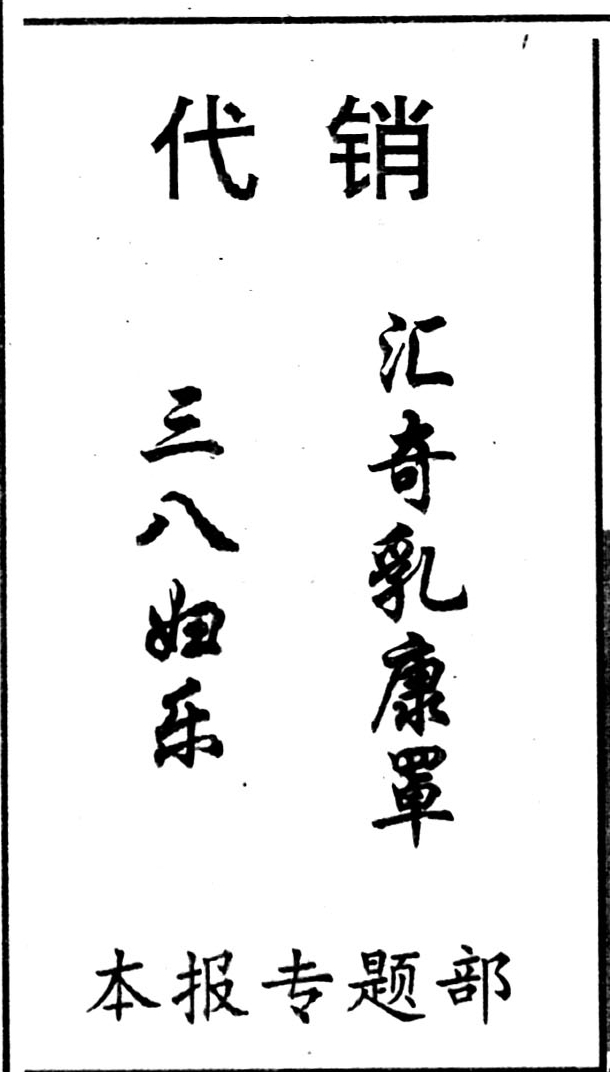 代销
汇奇乳康罩
三八妇乐
本报专题部